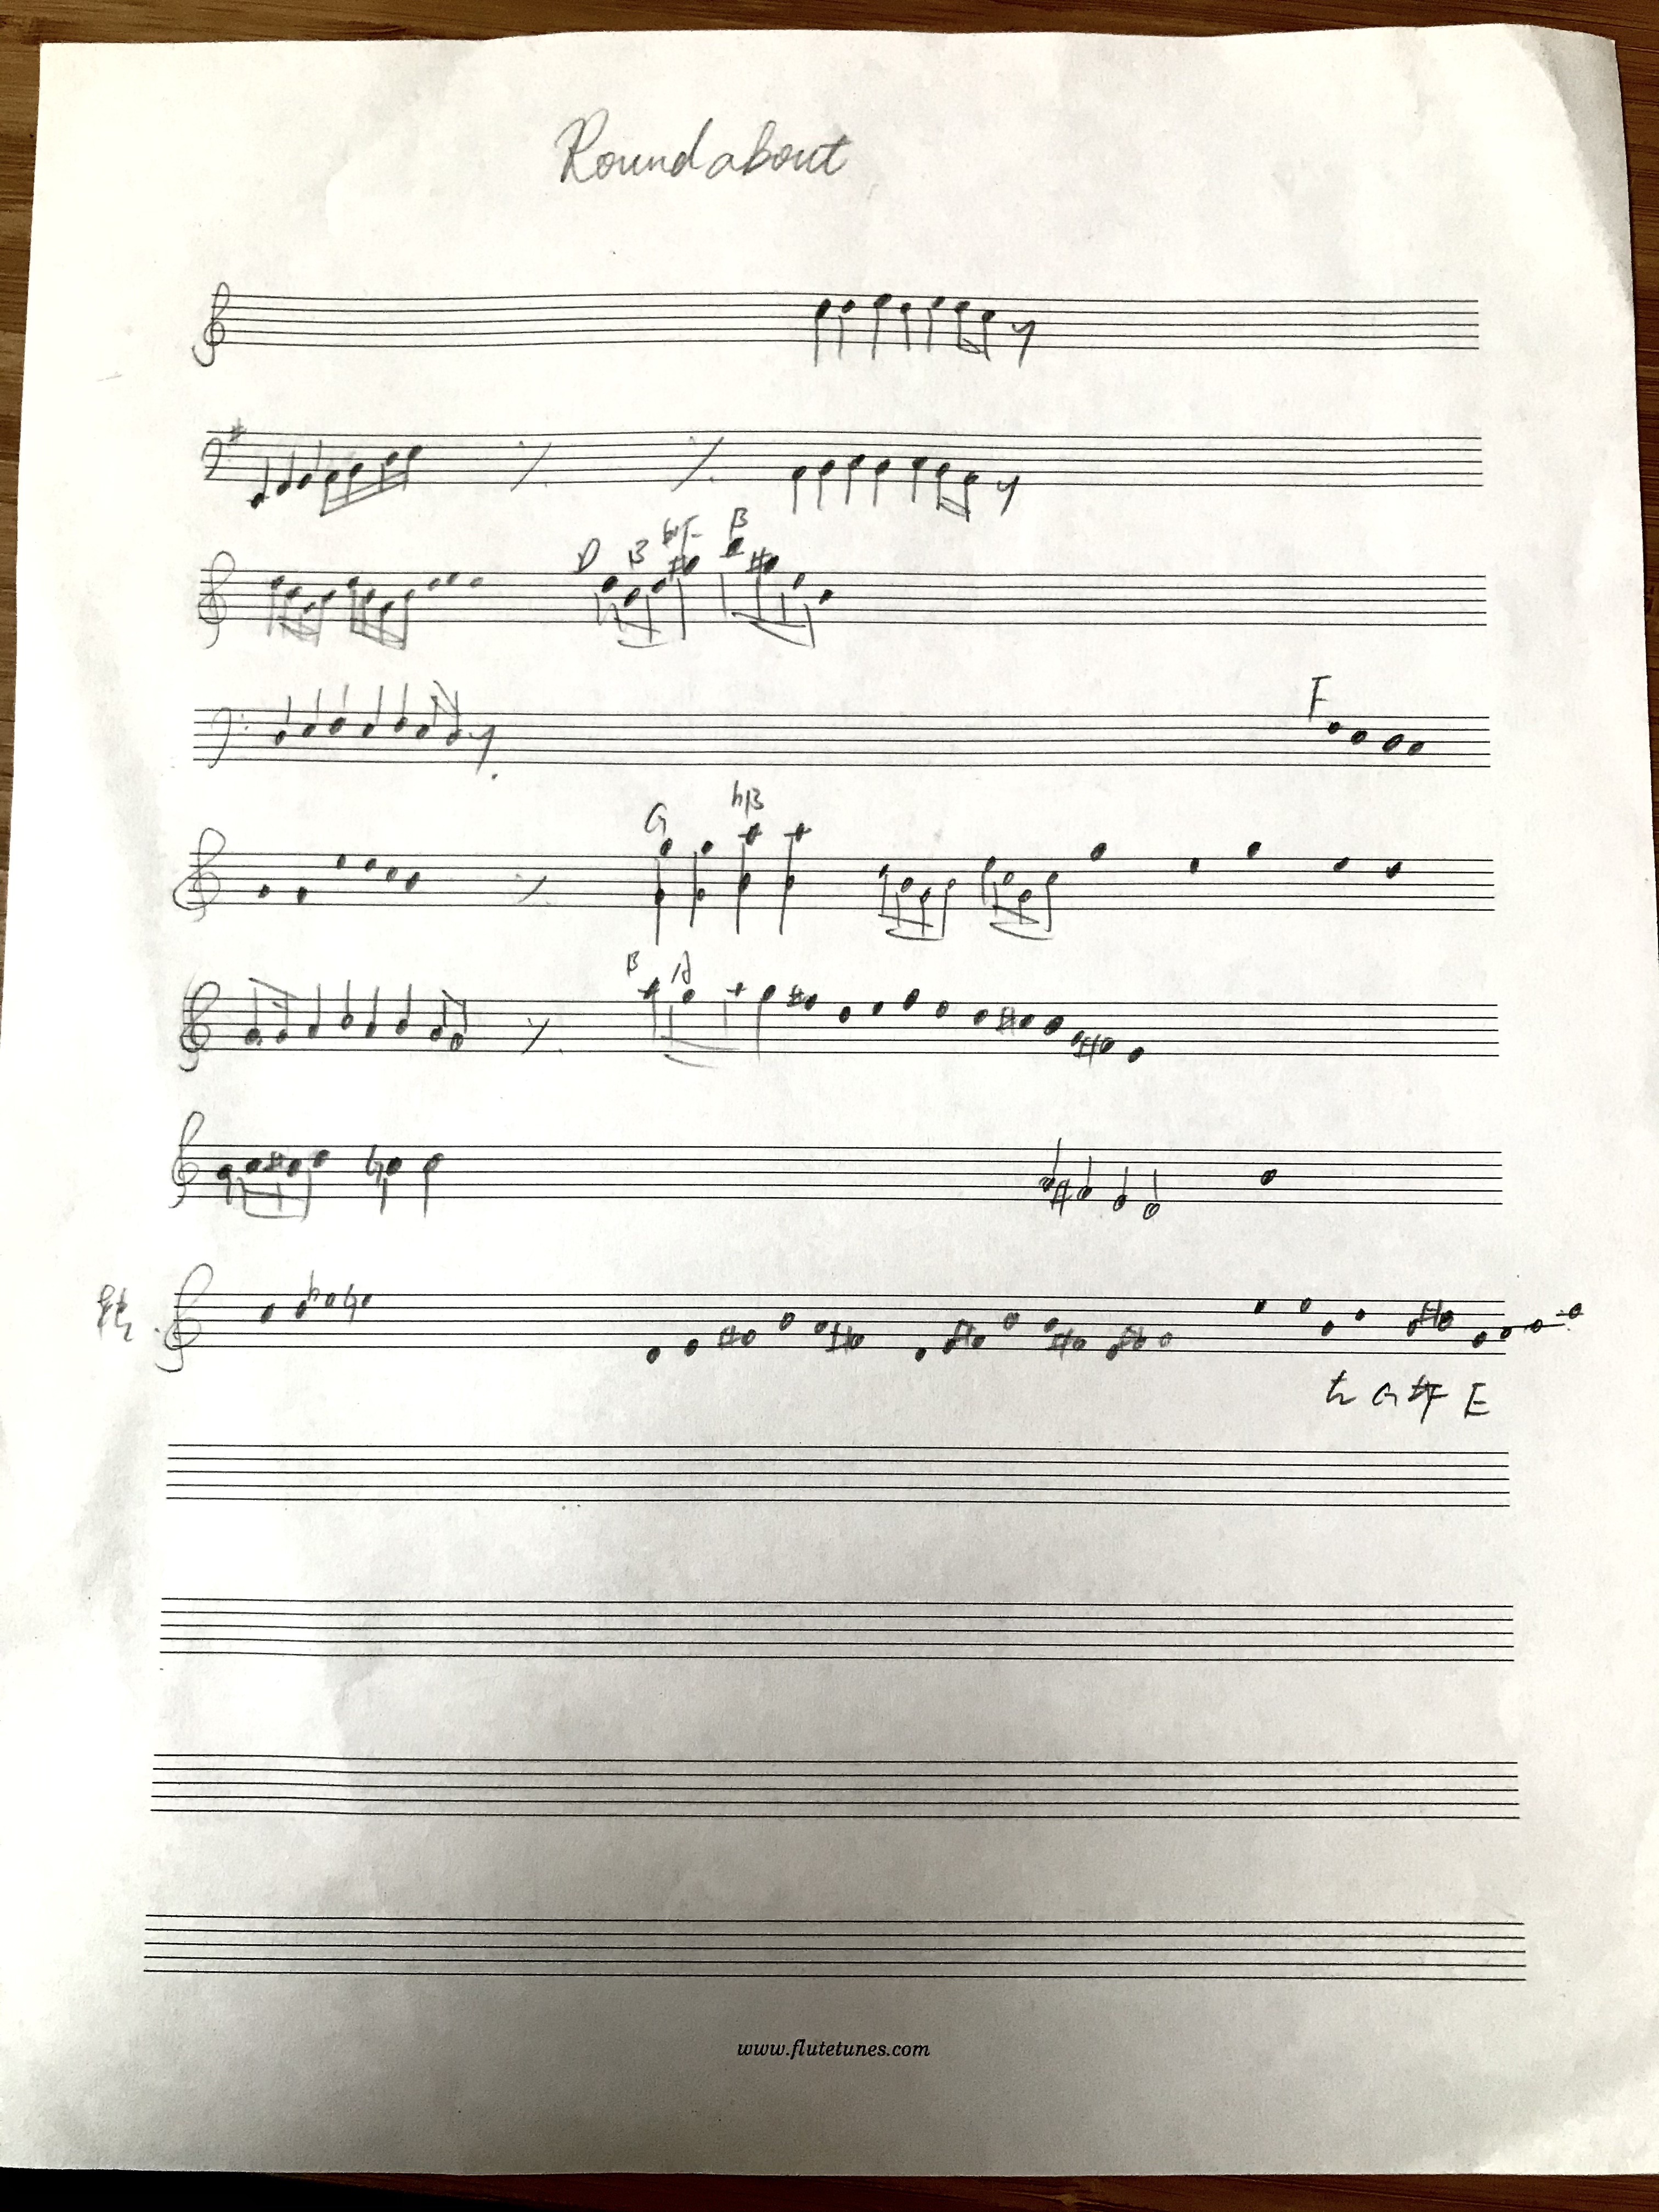 Roundabout
D B #F B
F
G B
B A
左 G #F E
www.flutetunes.com